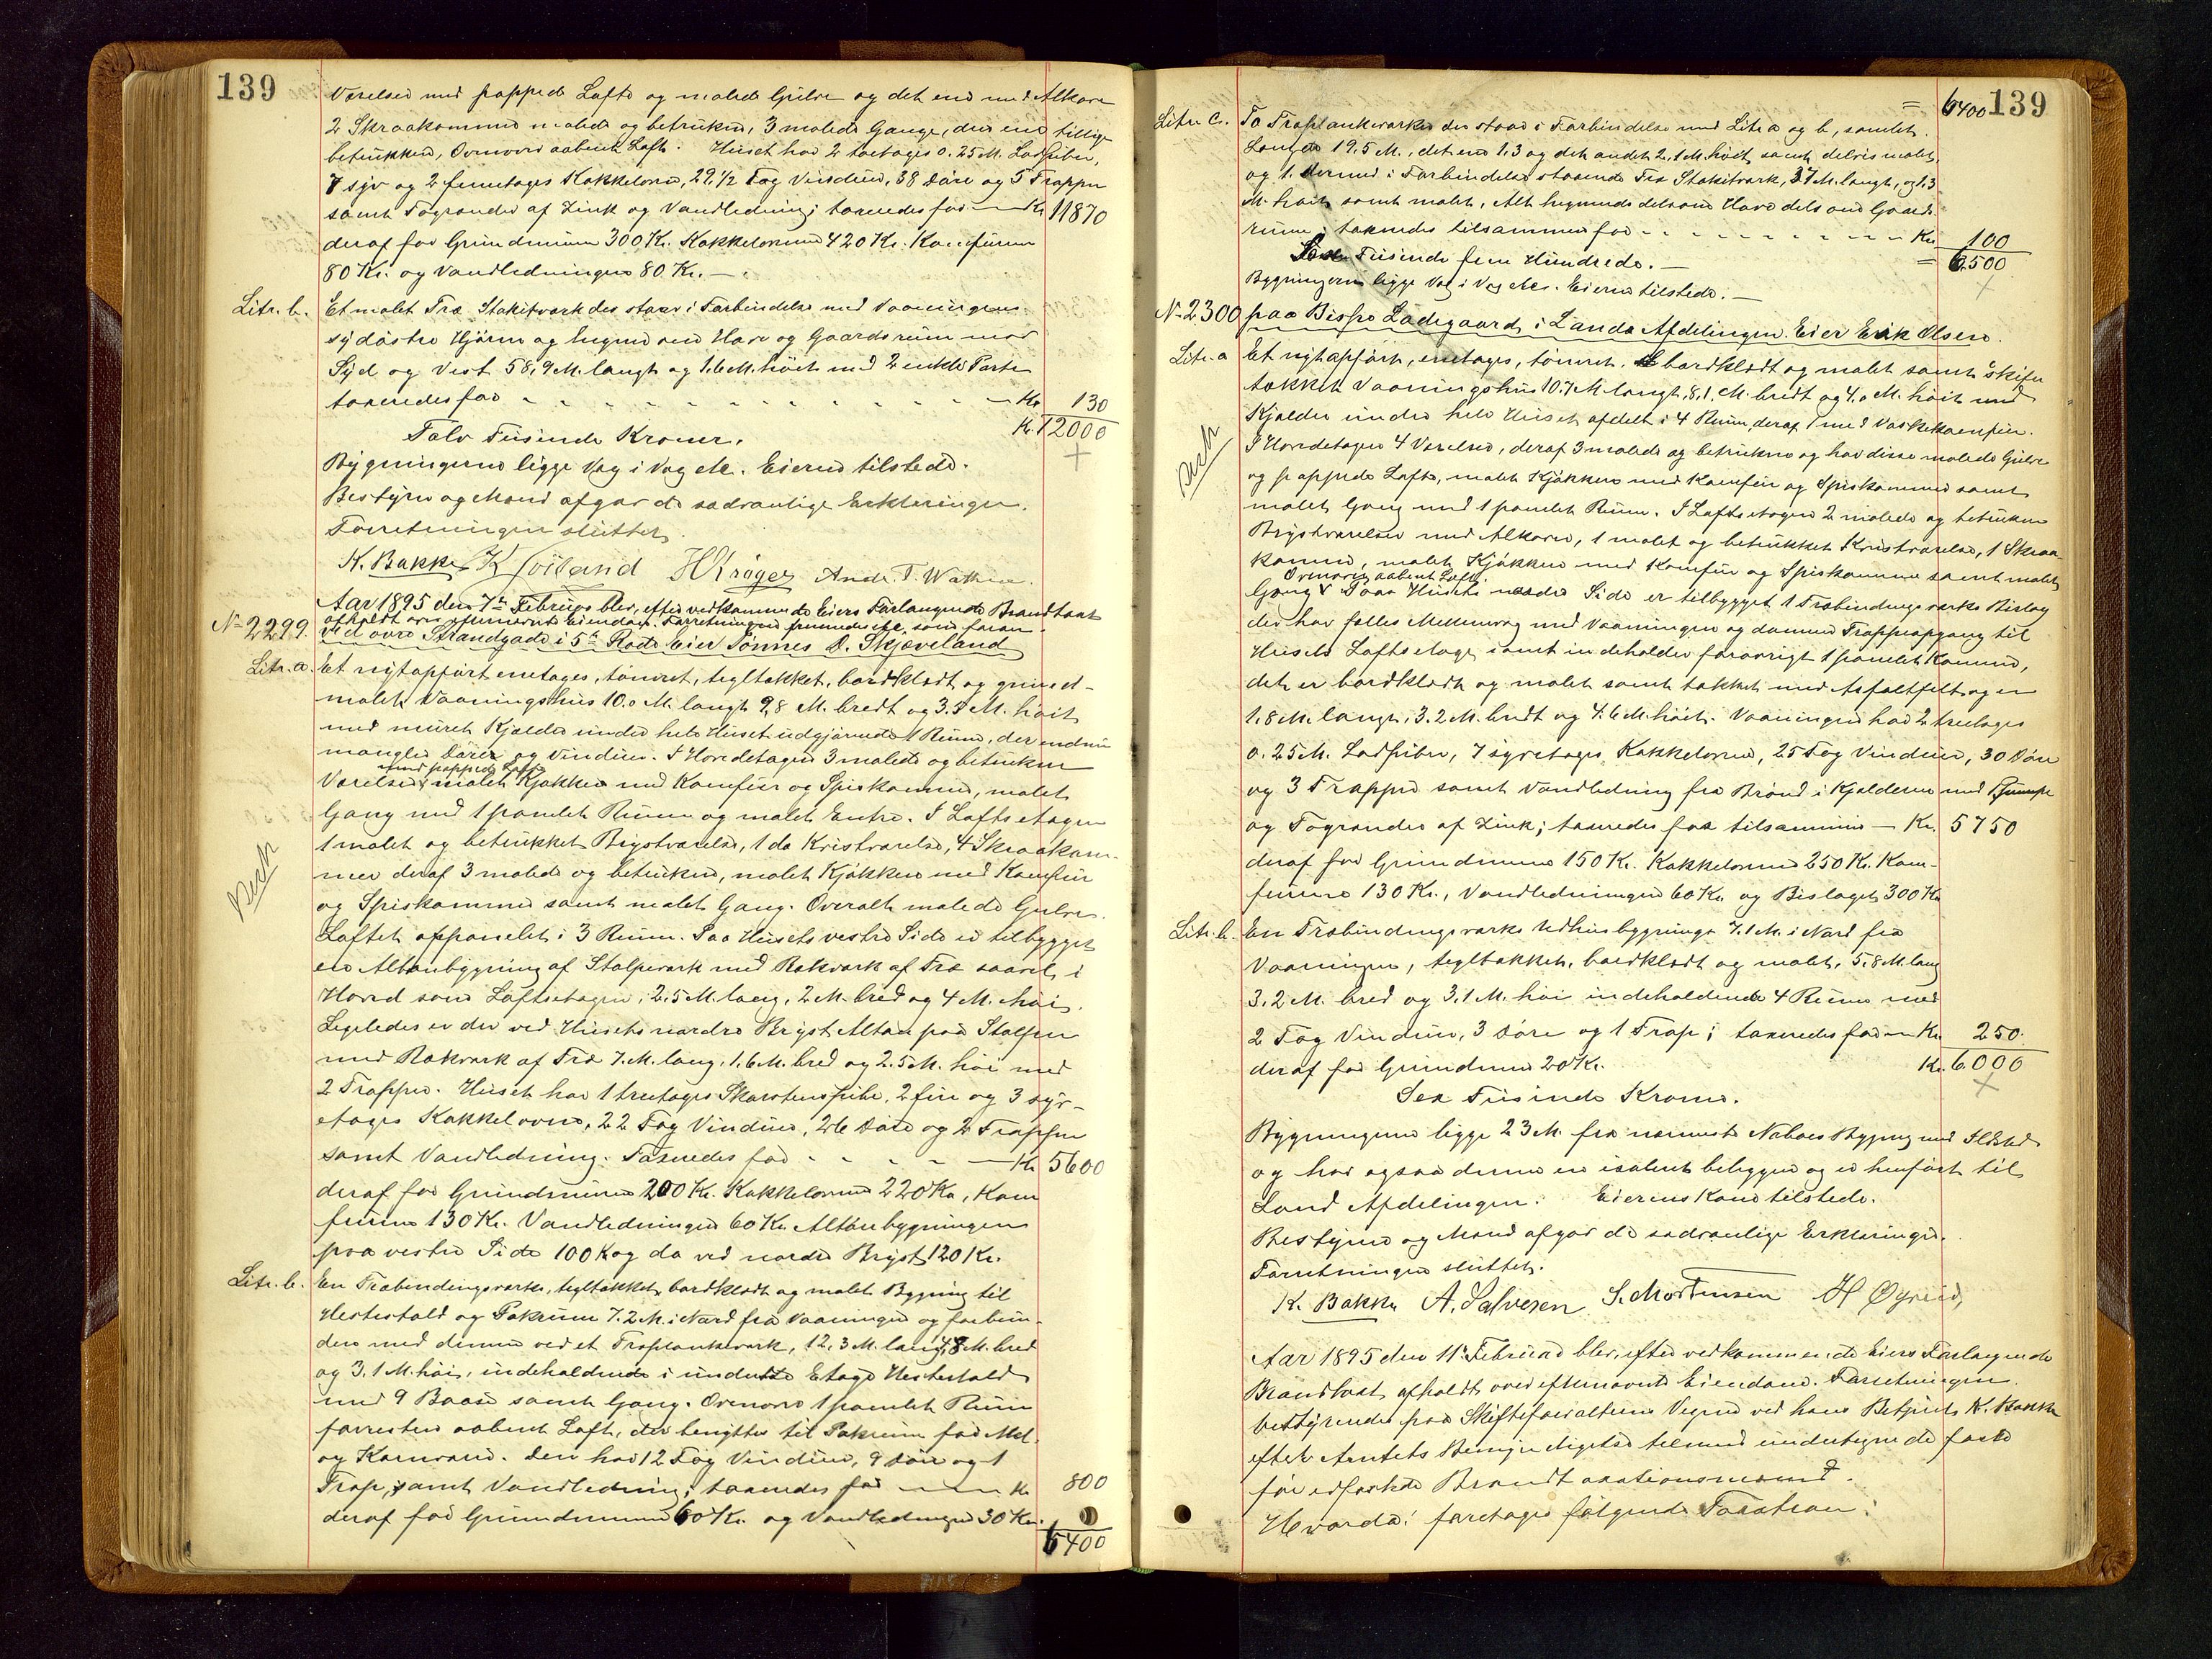 139
Værelser med pappede Lofte og malede Gulve og det ene med Alkove
2 Skraakammere malede og betrukne, 3 malede Gange, den ene tillige
betrukken, Ovenover aabent Loft. Huset har 2 toetages 0.25 M. Lodpiber,
7 sjv og 2 femetages Kakkelovne, 29 1/2 Fag Vinduer, 38 Döre og 5 Trapper
samt Tagrender af Zink og Vandledning; taxeredes for Kr. 11870
deraf for Grundmuren 300 Kr. Kakkelovnene 420 Kr. Komfuren
80 Kr. og Vandledningen 80 Kr.
Litr. b. Et malet Træ Stakitværk der staar i Forbindelse med Vaaningens
sydöstre Hjörne og hegner om Have og Gaardsrum mod
Syd og Vest 58,9 M. langt og 1.6 M. höit med 2 enkle Porte
taxeredes for Kr. 130
Kr. 12000
Tolv Tusinde Kroner.
Bygningerne ligge Væg i Væg etc. Eieren tilstede.
Bestyrer og Mænd afgav de sædvanlige Erklæringer.
Forretningen sluttet.
K. Bakke K Höiland H Kröger Andr. T. Watne
Aar 1895 den 7de Februar blev, efter vedkommende Eiers Forlangende Brandtaxt
afholdt over efternævnte Eiendom. Forretningen fremmedes etc. som foran.
No 2299. ved övre Strandgade i 5te Rode Eier Tönnes D. Skjæveland
Litr. a. Et nyt opfört enetages, tömret, tegltækket, bordklædt og grund-
malet Vaaningshus 10.0 M. langt 9,8 M. bredt og 3.3 M. höit
med muret Kjælder under hele Huset udgjörende 1 Rum, der endnu
mangler Dörer og Vinduer. I Hovedetagen 3 malede og betrukne
med pappede Lofte
Værelser, malet Kjökken med Komfur og Spiskammer, malet
Gang med 1 panelet Rum og malet Entre. I Loftsetagen
1 malet og betrukket Brystværelse, 1 do Kvistværelse, 4 Skraakam-
mer deraf 3 malede og betrukne, malet Kjökken med Komfur
og Spiskammer samt malet Gang. Overalt malede Gulve.
Loftet oppanelet i 3 Rum. Paa Husets vestre Side er tilbygget
en Altanbygning af Stolpeværk med Rækværk af Træ saavel i
Hoved som Loftsetagen, 2,5 M. lang, 2 M. bred og 4 M. höi.
Ligeledes er der ved Husets nordre Bryst Altan paa Stolper
med Rækværk af Træ 7. M. lang, 1,6 M. bred og 2.5 M. höi med
2 Trapper. Huset har 1 treetages Skorstenspibe, 2 fire og 3 syv-
etages Kakkelovne, 22 Fag Vinduer, 26 Döre og 2 Trapper
samt Vandledning. Taxeredes for Kr 5600
deraf for Grundmuren 200 Kr. Kakkelovnene 220 Kr, Kom
furene 130 Kr. Vandledningen 60 Kr. Altanbygningen
paa vestre Side 100 K og do ved nordre Bryst 120 Kr.
Litr. b. En Træbindingsværks, tegltækket, bordklædt og malet Bygning til
Hestestald og Pakrum 7.2 M. i Nord fra Vaaningen og forbun-
den med denne ved et Træplankeværk, 12,3 M. lang, 4,8 M. bred
og 3,1 M. höi, indeholdende i underste Etage Hestestald
med 9 Baase samt Gang. Ovenover 1 panelet Rum
forresten aabent Loft, der benyttes til Pakrum for Mel-
og Kornvarer. Den har 12 Fag Vinduer, 9 Döre og 1
Trap, samt Vandledning; taxeredes for Kr 800
deraf for Grundmuren 60 Kr. og Vandledningen 30 Kr.
6400
139
= 6400
Litr. C. To Træplankeværker der staar i Forbindelse med Litr. a og b, samlet
Længde 19.5 M., det ene 1.3 og det andet 2,1 M. höit samt delvis malet,
og 1 dermed i Forbindelse staaende Træ Stakitværk, 37 M. langt, og 1.3
M. höit samt malet, Alt hegnende dels om Have dels om Gaards-
rum; taxeredes tilsammen for Kr. 100
Tusinde fem Hundrede. = 6,500
Bygningerne ligge Væg i Væg etc. Eieren tilstede.
No 2300 paa Bispe Ladegaard i Lands Afdelingen. Eier Erik Olsen.
Litr. a Et nyt opfört, enetages, tömret, bordklædt og malet samt skifer
tækket Vaaningshus 10.7 M. langt, 8,1 M. bredt og 4.0 M. höit med
Kjælder under hele Huset afdelt i 4 Rum, deraf 1 med Vaskekomfur.
I Hovedetagen 4 Værelser, deraf 3 malede og betrukne og har disse malede Gulve
og pappede Lofte, malet Kjökken med Komfur og Spiskammer samt
malet Gang med 1 panelet Rum. I Loftsetagen 2 malede og betrukne
Brystværelser med Alkover, 1 malet og betrukket Kvistværelse, 1 Skraa
kammer, malet Kjökken med Komfur og Spiskammer samt malet
Ovenover aabent Loft.
Gang. Paa Husets nordre Side er tilbygget 1 Træbindingsværks Bislag
der har fælles Mellemvæg med Vaaningen og danner Trappeopgang til
Husets Loftsetage samt indeholder forövrigt 1 panelet Kammer,
det er bordklædt og malet samt tækket med Asfaltfilt og er
1.8 M. langt, 3.2 M. bredt og 4.6 M. höit. Vaaningen har 2 treetages
0.25 M. Lodpiber, 7 syvetages Kakkelovne, 25 Fag Vinduer, 30 Döre
og 3 Trapper samt Vandledning fra Brönd i Kjælderen med 1 Pumpe
og Tagrender af Zink; taxeredes for tilsammen Kr. 5750
deraf for Grundmuren 150 Kr. Kakkelovnene 250 Kr. Kom-
furene 130 Kr., Vandledningen 60 Kr. og Bislaget 300 Kr
Litr. b. En Træbindingsværks Udhusbygning 7.1 M. i Nord fra
Vaaningen, tegltækket, bordklædt og malet, 5,8 M. lang
3.2 M. bred og 3,1 M. höi indeholdende 4 Rum med
2 Fag Vinduer, 3 Döre og 1 Trap; taxeredes for Kr. 250.
deraf for Grundmuren 20 Kr. Kr. 6.000
Sex Tusinde Kroner.
Bygningerne ligge 23 M. fra nærmeste Naboes Bygning med Ildsted
og har ogsaa denne en isoleret beliggenhed og er henfört til
Land Afdelingen. Eierens Kone tilstede.
Bestyrer og Mænd afgav de sædvanlige Erklæringer.
Forretningen sluttet.
K. Bakke A. Salvesen S. Mortensen H Øgreid
Aar 1895 den 11te Februar blev, efter vedkommende Eiers Forlangende
Brandtaxt afholdt over efternævnte Eiendom. Forretningen
bestyredes paa Skifteforvalterens Vegne ved hans Betjent K. Bakke
efter Amtets Bemyndigelse tilmed undertegnede faste
för edfæstede Brandtaxationsmænd.
Hvorda foretoges fölgende Taxation: